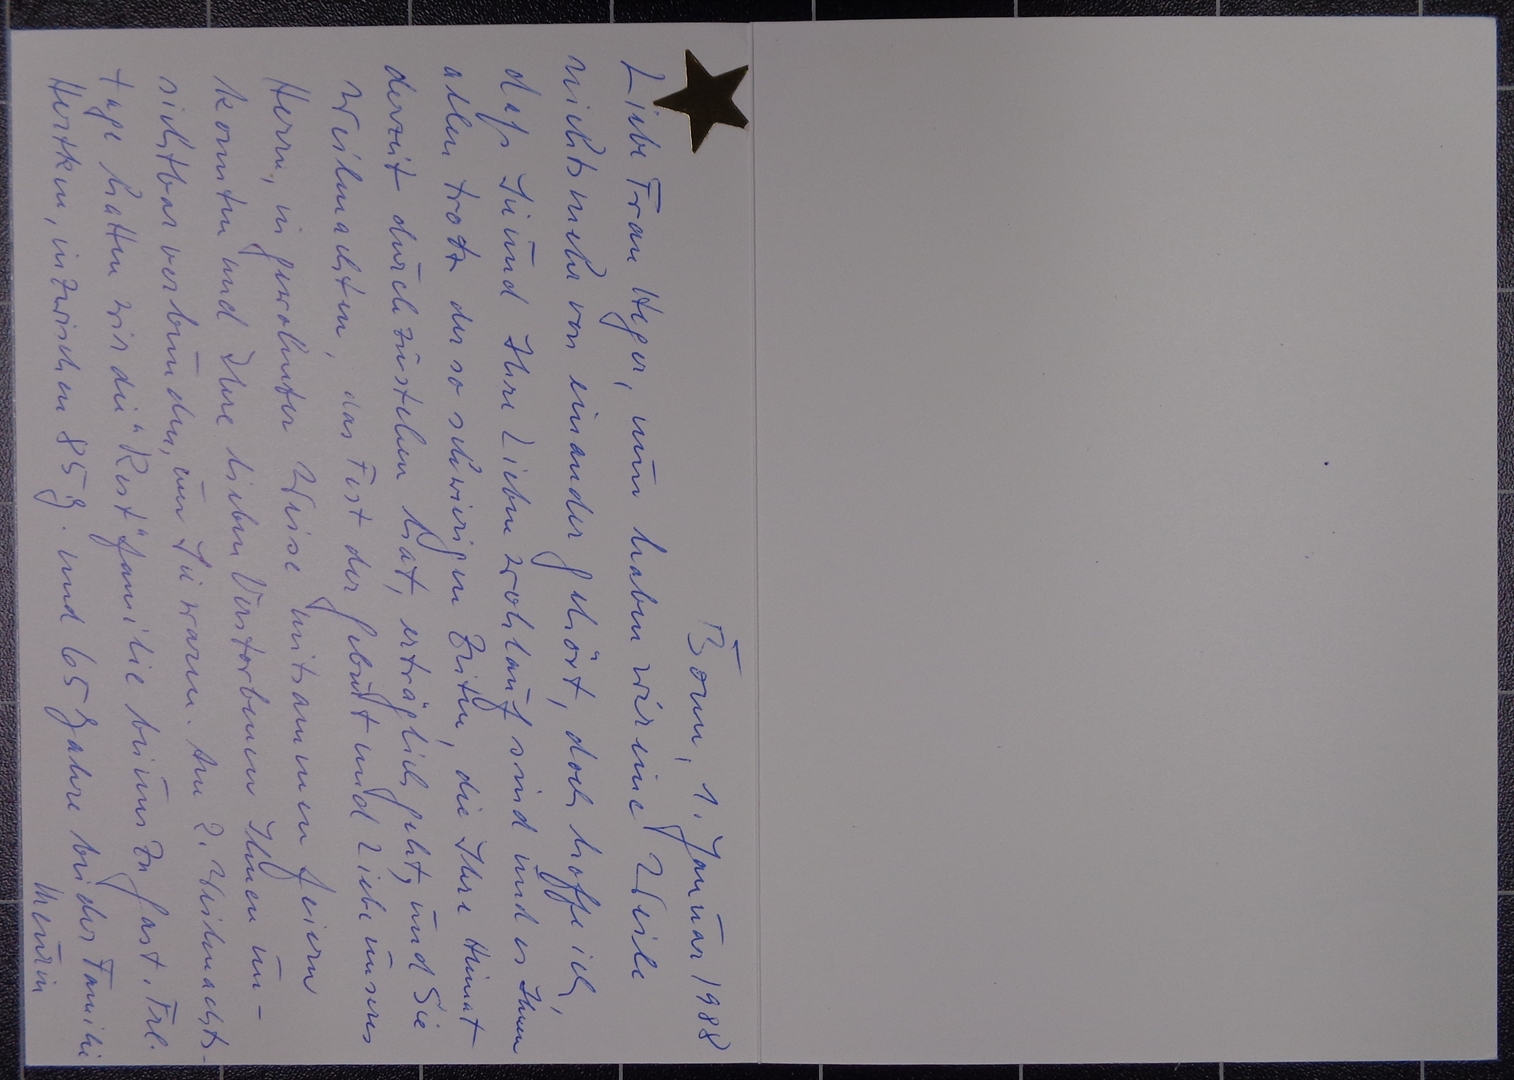 Bonn, 1. Januar 1988
Liebe Frau Heger, nun haben wir eine Weile
nichts mehr von einander gehört, doch hoffe ich,
daß Sie und Ihre Lieben wohlauf sind und es Ihnen
allen trotz der so schwierigen Zeiten, die Ihre Heimat
derzeit durchzustehen hat, erträglich geht, und Sie
Weihnachten, das Fest der Geburt und Liebe unseres
Herrn, in gewohnter Weise mitsammen feiern
konnten und Ihre lieben Verstorbenen Ihnen un-
sichtbar verbunden, um Sie waren. Am 2. Weihnachts-
tage hatten wir die "Rest"familie bei uns zu Gast. Frl.
inzwischen 85 J. und 65 Jahre bei der Familie